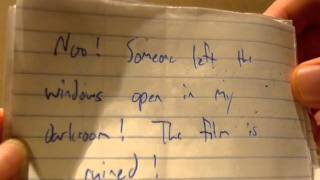 Noo! Someone left the
windows open in my
darkroom! The film is
ruined!